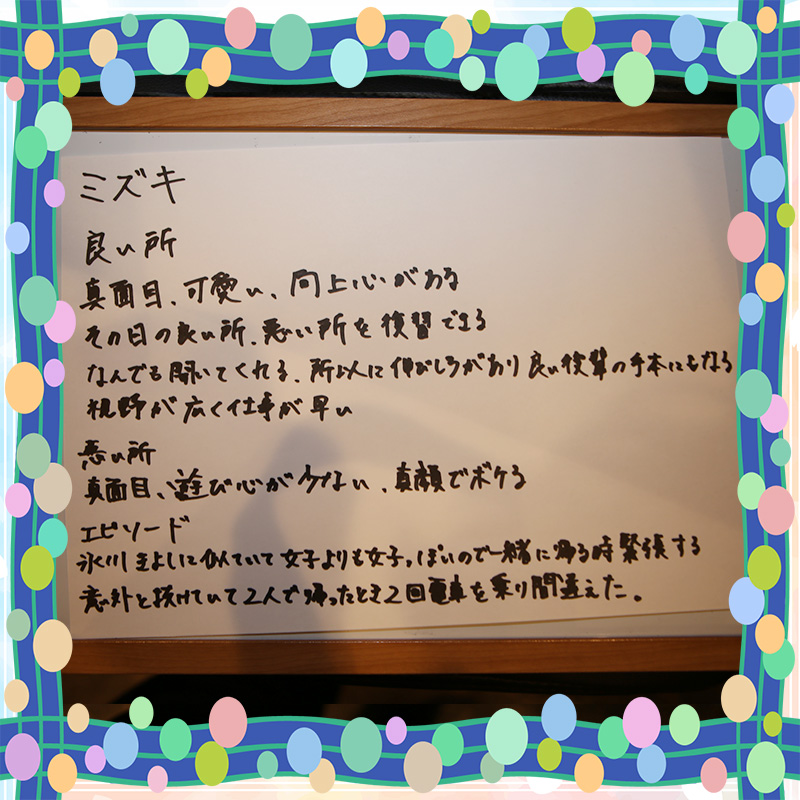 ミズキ
良い所
真面目、可愛い、向上心がある
その日の良い所、悪い所を復習できる
なんでも聞いてくれる、所以に伸びしろがあり良い後輩の手本にもなる
視野が広く仕事が早い
悪い所
真面目、遊び心が少ない、真顔でボケる
エピソード
氷川きよしに似ていて女子よりも女子っぽいので一緒に帰る時緊張する
意外と抜けていて2人で帰ったとき2回電車を乗り間違えた。